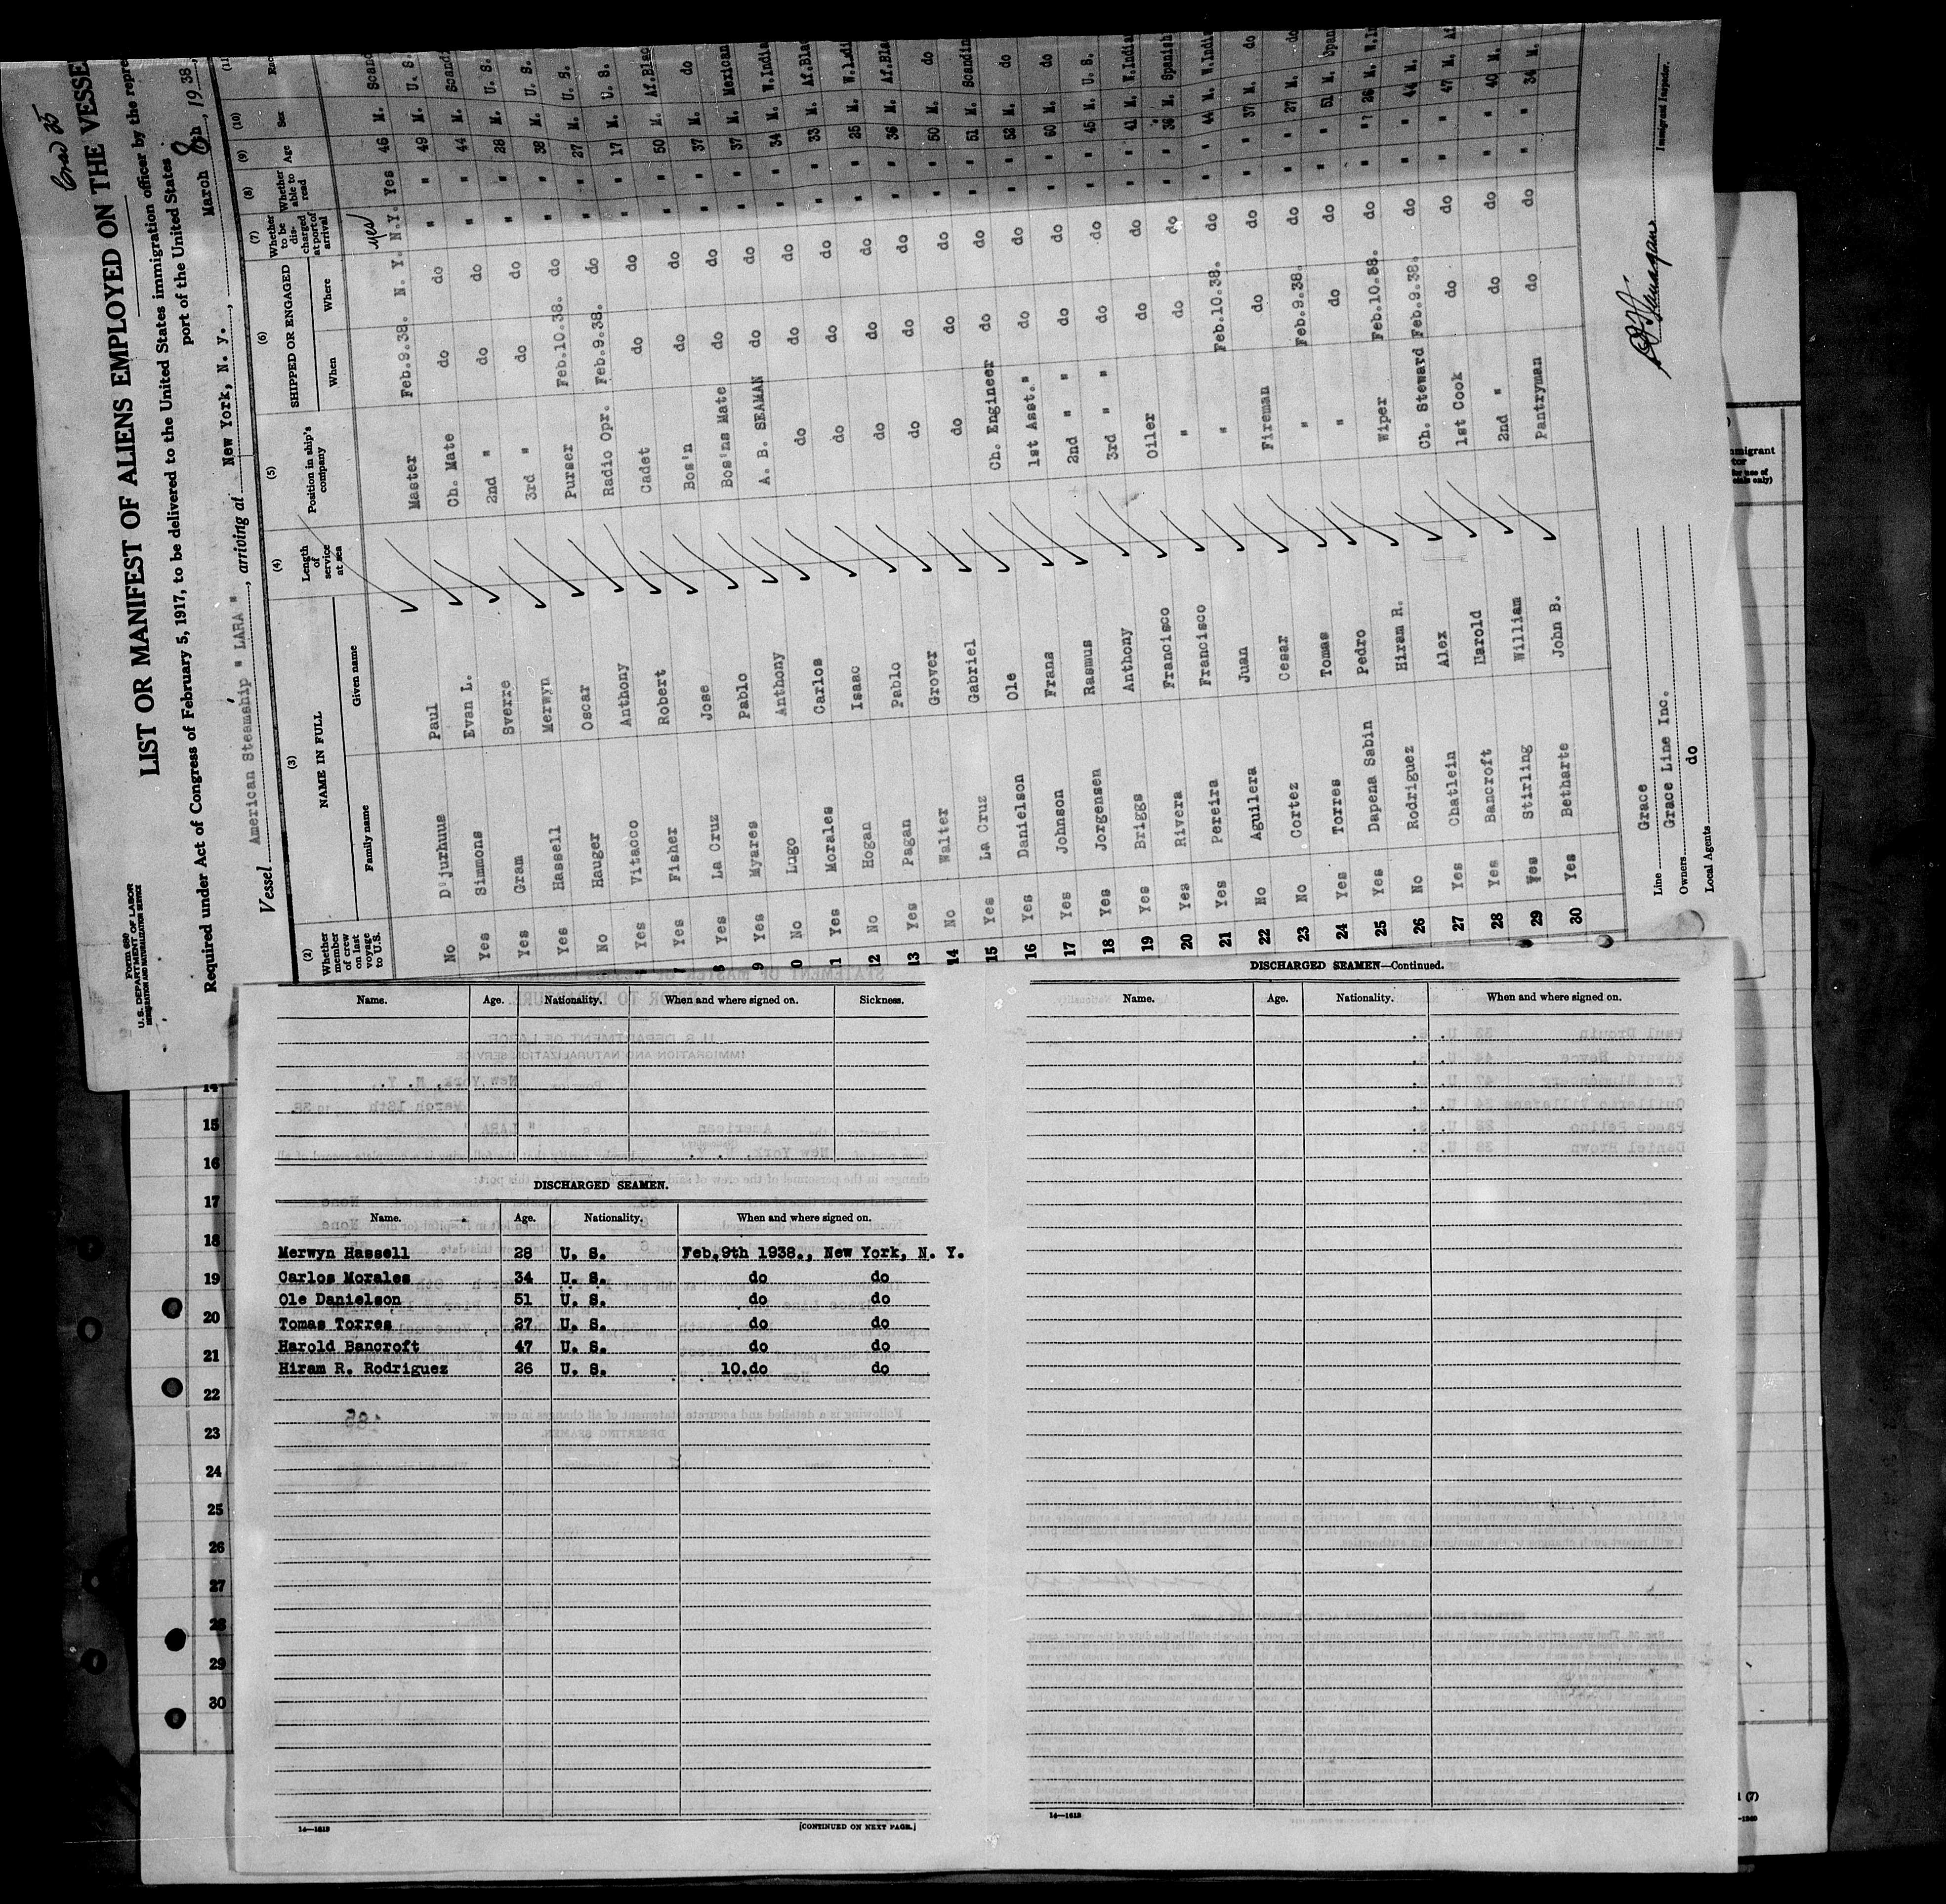 Form 680
U. S. DEPARTMENT OF LABOR
IMMIGRATION AND NATURALIZATION SERVICE
LIST OR MANIFEST OF ALIENS EMPLOYED ON THE VESSE
Required under Act of Congress of February 5, 1917, to be delivered to the United States immigration officer by the repre
port of the United States
Vessel American Steamship " LARA ", arriving at New York, N. y., March 8th, 1938
(2) (3) (4) (5) (6) (7) (8) (9) (10) (11)
Whether member of crew on last voyage to U.S. NAME IN FULL Length of service at sea Position in ship's company SHIPPED OR ENGAGED Whether to be discharged at port of arrival Whether able to read Age Sex Rac
Family name Given name When Where
yes
No D'jurhuus Paul Master Feb.9.38. N. Y. N.Y. Yes 46 M. Scand
Yes Simmons Evan L. Ch. Mate do do " " 49 M. U. S.
Yes Gram Sverre 2nd " do do " " 44 M. Scandi
Yes Hassell Merwyn 3rd " do do " " 28 M. U. S.
No Hauger Oscar Purser Feb.10.38. do " " 38 M. U. S.
Yes Vitacco Anthony Radio Opr. Feb.9.38. do " " 27 M. U. S.
7 Yes Fisher Robert Cadet do do " " 17 M. U. S.
8 Yes La Cruz Jose Bos'n do do " " 50 M. Af.Blac
9 Yes Myares Pablo Bos'ns Mate do do " " 37 M. do
0 No Lugo Anthony A. B. SEAMAN do do " " 37 M. Mexican
11 Yes Morales Carlos do do do " " 34 M. W.India
12 No Hogan Isaac do do do " " 33 M. Af.Blac
13 Yes Pagan Pablo do do do " " 25 M. W.Indi
14 No Walter Grover do do do " " 36 M. Af.Blac
15 Yes La Cruz Gabriel do do do " " 50 M. do
16 Yes Danielson Ole Ch. Engineer do do " " 51 M. Scandin
17 Yes Johnson Frans 1st Asst." do do " " 52 M. do
18 Yes Jorgensen Rasmus 2nd " " do do " " 60 M. do
19 Yes Briggs Anthony 3rd " " do do " " 45 M. U. S.
20 Yes Rivera Francisco Oiler do do " " 41 M. W.India
21 Yes Pereira Francisco " do do " " 36 M. Spanish
22 No Aguilera Juan " Feb.10.38. do " " 44 M. W.Indi
23 No Cortez Cesar Fireman do do " " 37 M. do
24 Yes Torres Tomas " Feb.9.38. do " " 27 M. do
25 Yes Dapena Sabin Pedro " do do " " 51 M. Span
26 No Rodriguez Hiram R. Wiper Feb.10.38. do " " 26 M. W.In
27 Yes Chatlein Alex Ch. Steward Feb.9.38. do " " 44 M.
28 Yes Bancroft Harold 1st Cook do do " " 47 M. Af
29 Yes Stirling William 2nd " do do " " 40 M.
30 Yes Betharte John B. Pantryman do do " " 34 M.
Line Grace
Owners Grace Line Inc.
Local Agents do
Immigrant Inspector.
Name. Age. Nationality. When and where signed on. Sickness.
DISCHARGED SEAMEN.
Name. Age. Nationality. When and where signed on.
Merwyn Hassell 28 U. S. Feb.9th 1938., New York, N. Y.
Carlos Morales 34 U. S. do do
Ole Danielson 51 U. S. do do
Tomas Torres 27 U. S. do do
Harold Bancroft 47 U. S. do do
Hiram R. Rodriguez 26 U. S. 10.do do
14—1613
[CONTINUED ON NEXT PAGE.]
DISCHARGED SEAMEN—Continued.
Name. Age. Nationality. When and where signed on.
14—1613
14
15
16
17
18
19
20
21
22
23
24
25
26
27
28
29
30